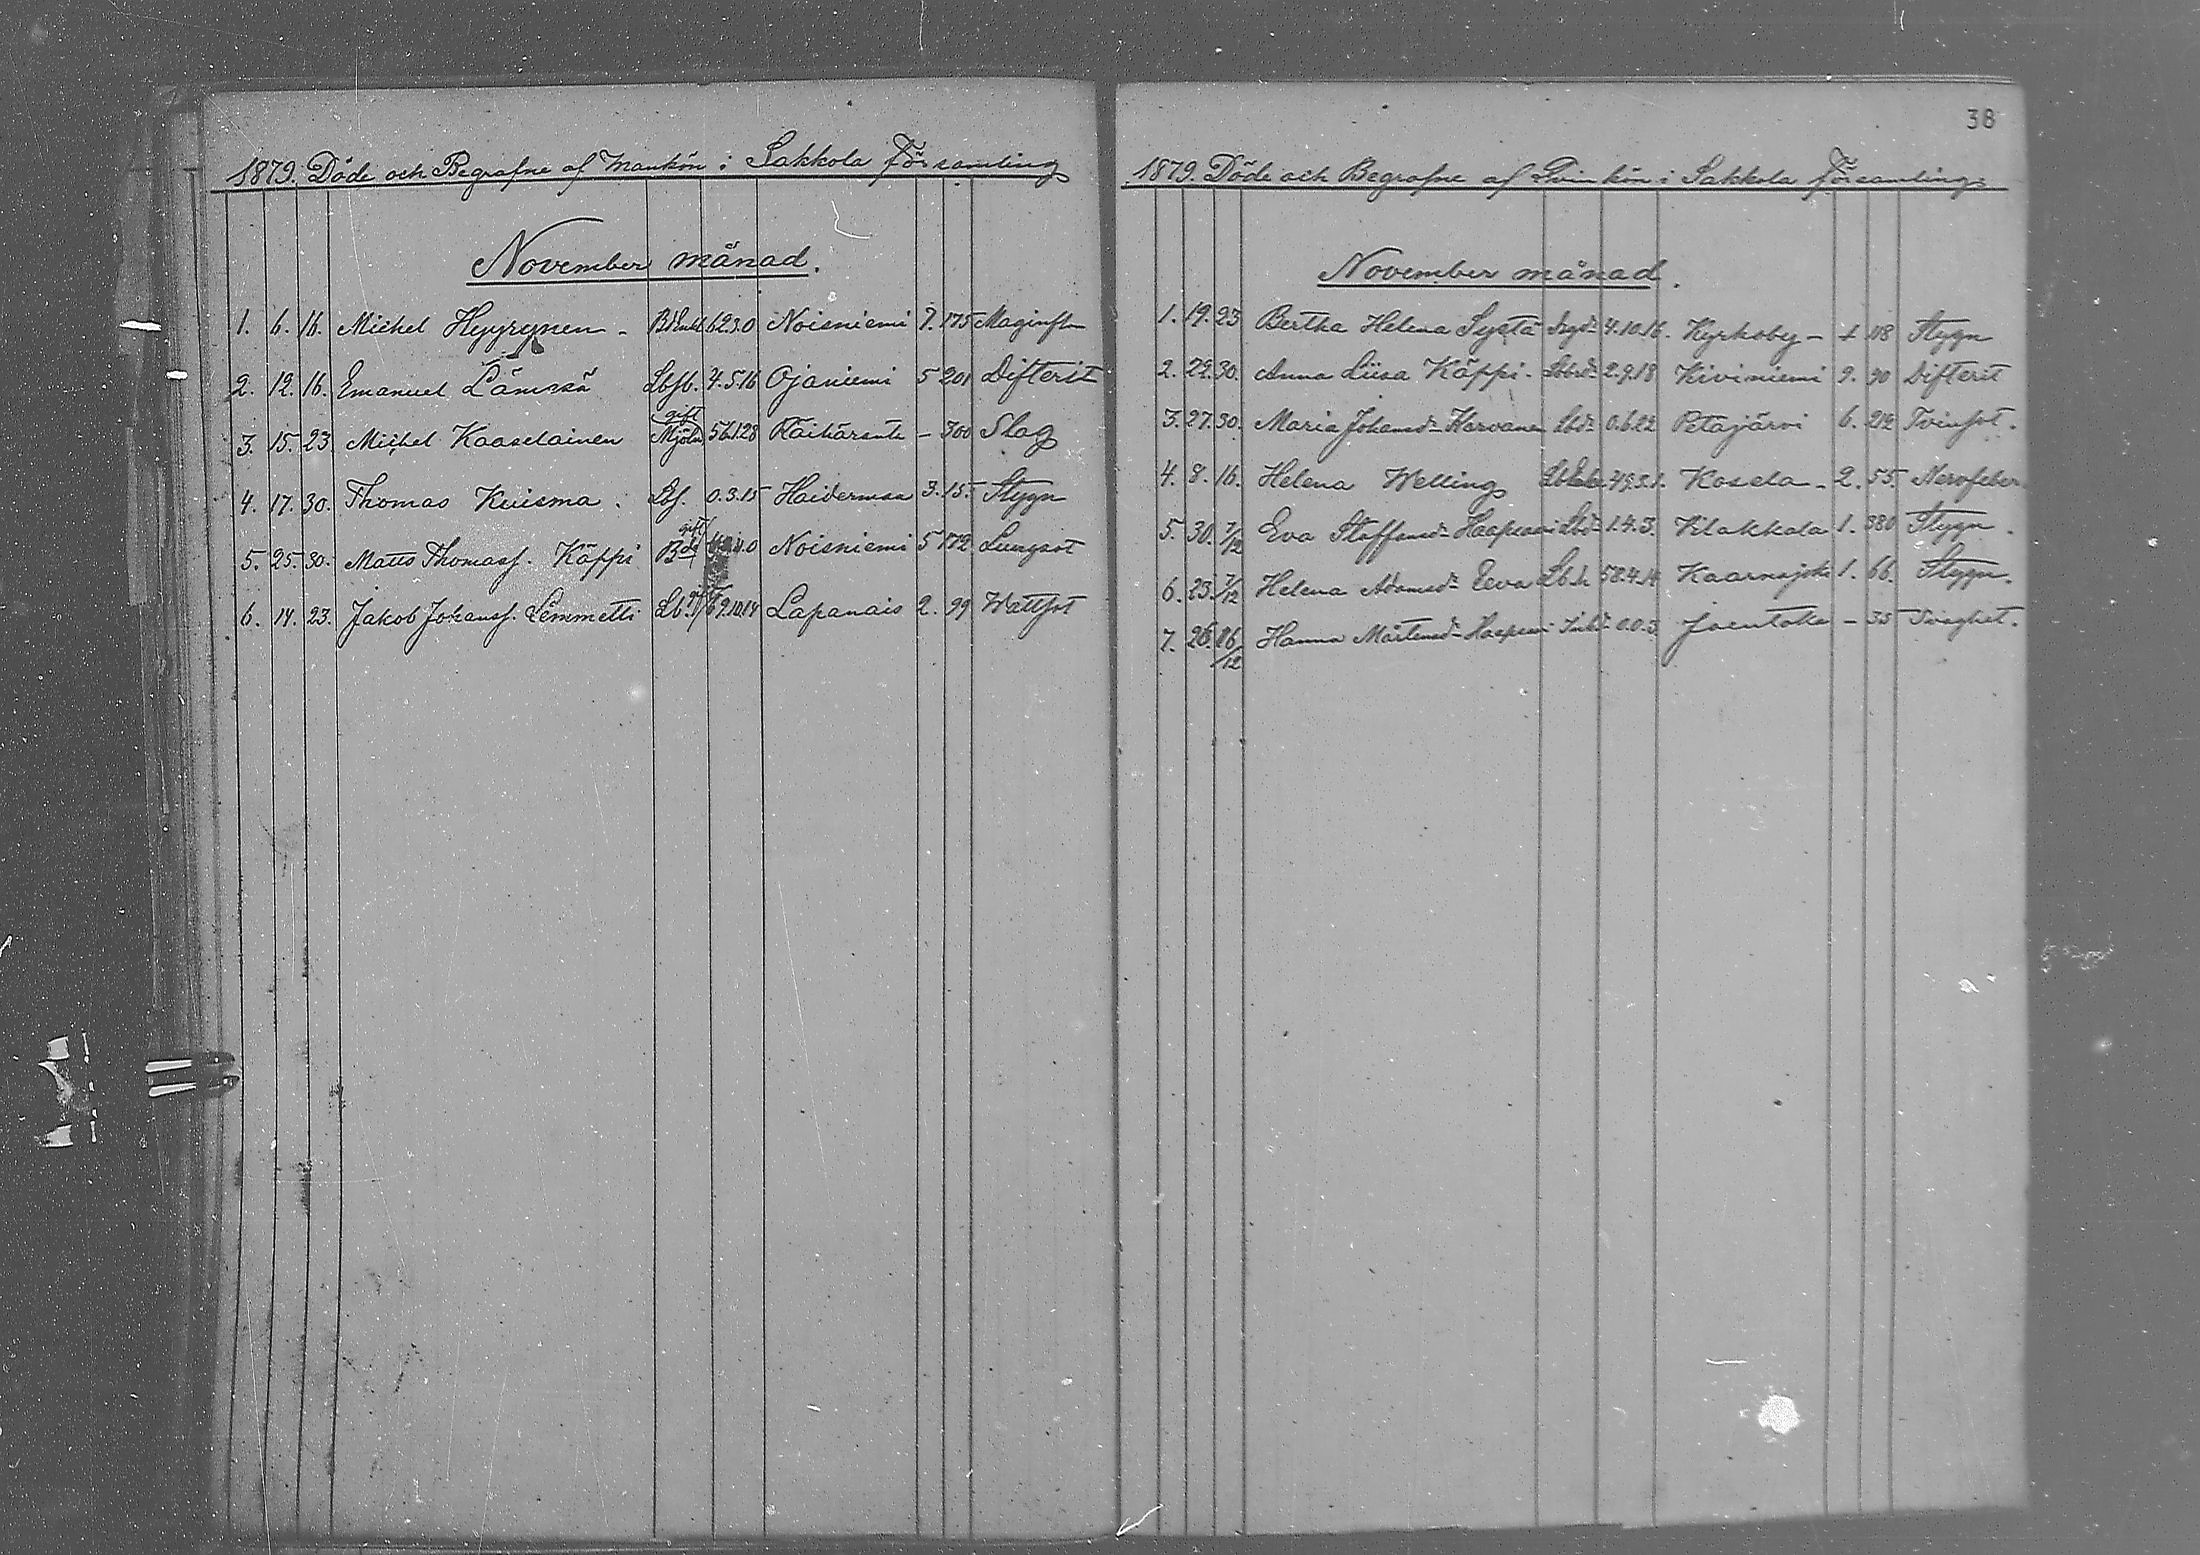 1879. Döde och Begrafne af Mankön i Sakkola församling
November månad.
1. 6. 16. Michel Hyyrynen - 62.3.0 Noisniemi 7. 175 Maginfln
2. 12. 16. Emanuel Lämsä Lbfb. 4.5.16 Ojaniemi 5 201 Difterit
3. 15. 23. Michel Kaaselainen gift Mjöln 56.1.28 Raihäranta - 300 Slag
4. 17. 30. Thomas Kuisma. Lbf. 0.3.15 Haidermaa 3. 15. Stygn
5. 25. 30. Matts Thomasf. Käppi gift Noisniemi 5 172 Lungsot
6. 14. 23. Jakob Johansf. Lemmetti Lb. 69.10.14 Lapanais 2. 99 Wattsot
38
1879. Döde och Begrafne af Qvinkön i Sakkola församling
November månad.
1. 19. 23 Bertha Helena Systä 4.10.16. Kyrkoby - 118 Stygn
2. 22. 30. Anna Liisa Käppi. 2.9.18 Kiviniemi 9. 90 Difterit
3. 27. 30. Maria Johansd. Karvanen Lbd. 0.6.22 Petäjärvi 6. 212 Tvinsot.
4. 8. 16. Helena Welling 49.3.1. Kosela - 2. 55. Nervfeber
5. 30. 7/12 Eva Staffansd. Haapsaari Lbd. 1.4.3. Vilakkala 1. 380 Stygn.
6. 23. 7/12 Helena Adamsd. Eeva 58.4.14 Kaarnajoki 1. 66. Stygn.
7. 26. 16/12 Hanna Mårtensd. 0.0.3 Joentaka - 35 Svaghet.